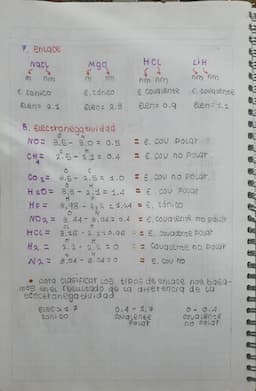 7. Enlace
NaCl MgO HCl LiH
m nm m nm nm nm nm nm
E. Iónico E. Iónico E. Covalente E. Covalente
Elen= 2.1 Elen= 2.3 Elen= 0.9 Elen= 1.2
8. Electronegatividad
NO= 3.5 - 3.0 = 0.5 = E. cov Polar
CH4 2.5 - 2.1 = 0.4 = E. cov no Polar
CO2= 3.5 - 2.5 = 1.0 = E. cov no Polar
H2O= 3.5 - 2.1 = 1.4 = E. cov Polar
HF= 3.98 - 2.2 = = E. Iónico
NO2= 3.44 - 3.04 = 0.4 = E. covalente no polar
HCl= 3.16 - 2.2 = 0.96 = E. covalente Polar
H2 = 2.2 - 2.2 = 0 = E. covalente no polar
N2 = 3.04 - 3.04 = 0 = E. cov no
• Para clasificar los tipos de enlace nos basa-
mos en el resultado de la diferencia de la
electronegatividad
Elec > 1.7 0.4 - 1.7 0 - 0.4
Iónico covalente covalente
Polar no polar